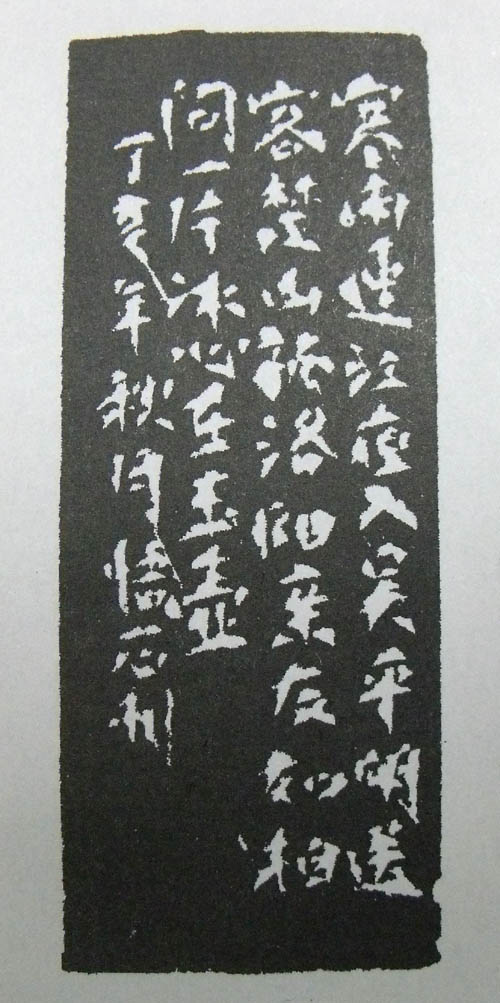 寒雨連江夜入吳平明送
客楚山孤洛陽亲友如相
問一片冰心在玉壺
丁亥年秋月石刊